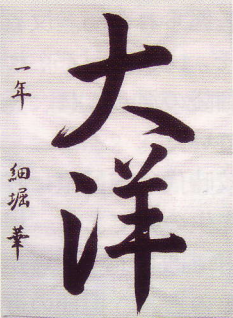 大洋
一年 細堀 華